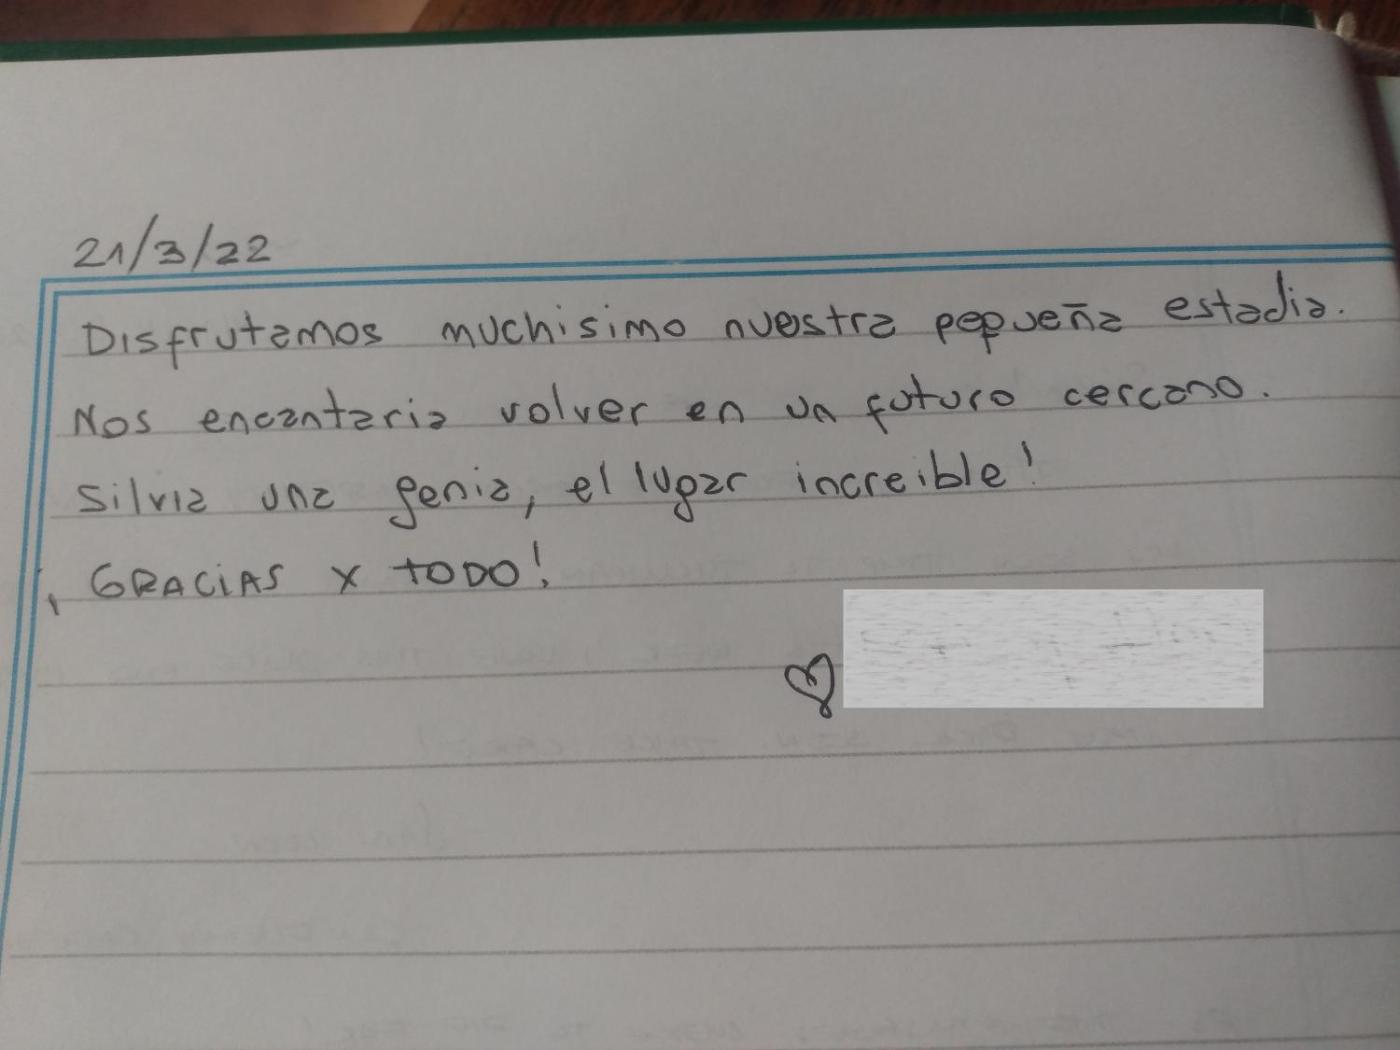 21/3/22
Disfrutamos muchisimo nuestra pequeña estadia.
Nos encantaria volver en un futuro cercano.
Silvia una genia, el lugar increible!
¡GRACIAS X TODO!